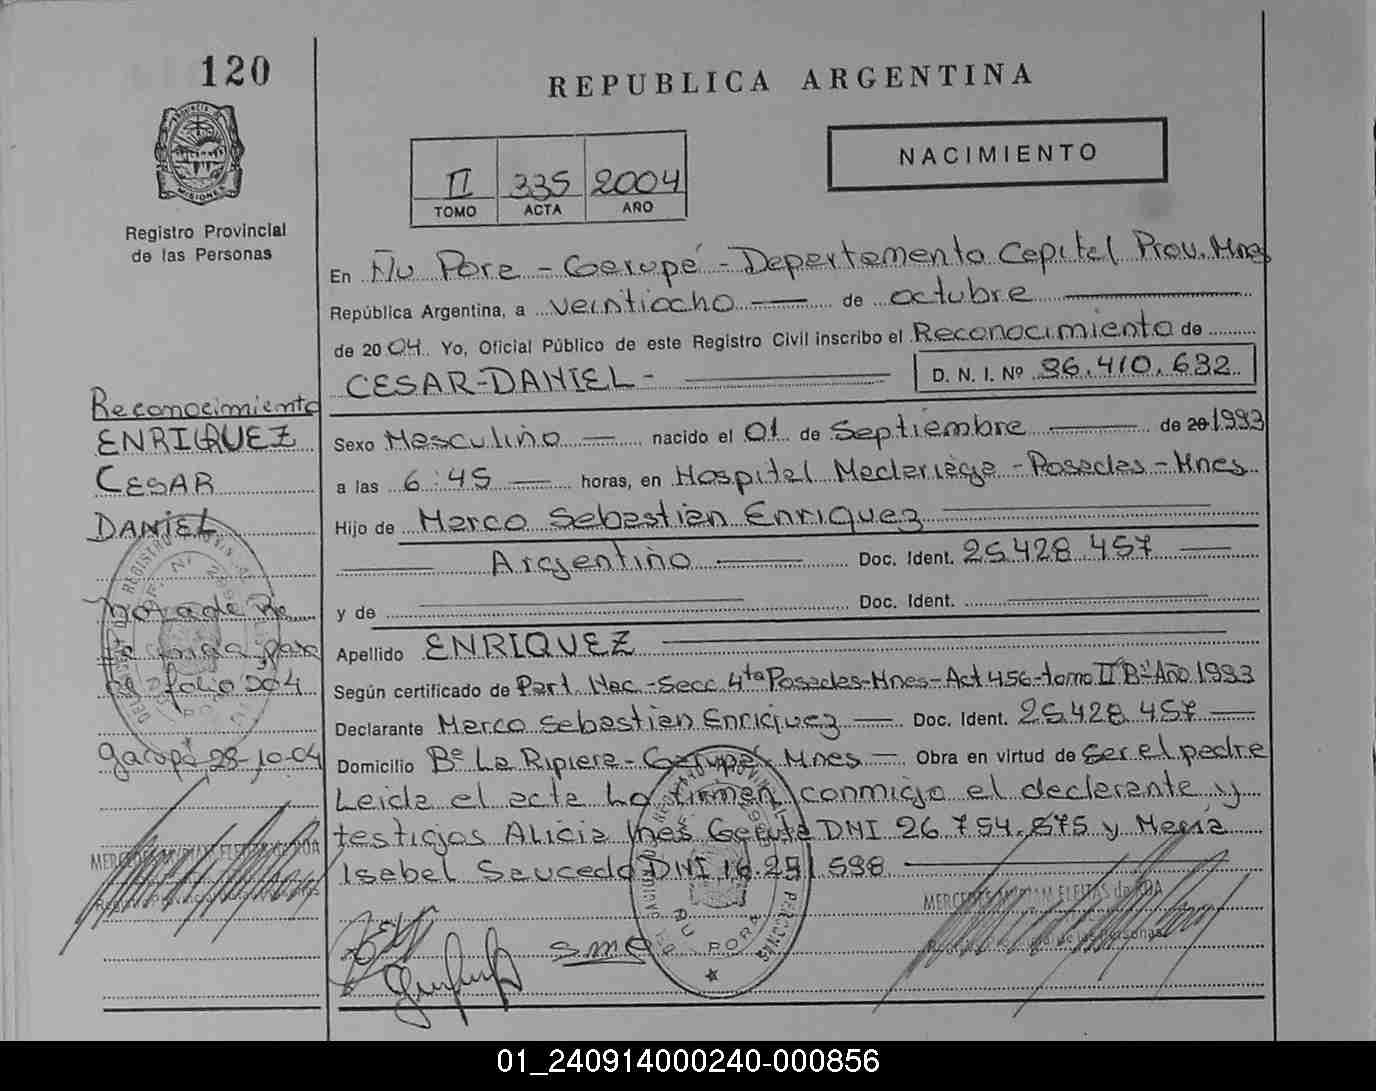 120
Registro Provincial
de las Personas
REPUBLICA ARGENTINA
NACIMIENTO
II 335 2004
TOMO ACTA AÑO
En Ñu Pora - Garupá - Departamento Capital Prov. Mnes
República Argentina, a veintiocho de octubre
de 2004. Yo, Oficial Público de este Registro Civil inscribo el Reconocimiento de
CESAR-DANIEL - D. N. I. Nº 36.410.632
Sexo Masculino nacido el 01 de Septiembre de 20 1993
a las 6:45 horas, en Hospital Madariaga - Posadas - Mnes
Hijo de Marco Sebastian Enriquez
Argentino Doc. Ident. 25.428.457
y de Doc. Ident.
Apellido ENRIQUEZ
Según certificado de Part. Nac. - Secc. 4ta Posadas - Mnes - Act 456 - tomo II Bis Año 1993
Declarante Marco Sebastian Enriquez Doc. Ident. 25.428.457
Domicilio Bº La Ripiera - Garupá Mnes Obra en virtud de ser el padre
Leida el acta La firman conmigo el declarante y
testigos Alicia Ines DNI 26.754.575 y Maria
Isabel Saucedo DNI 16.251.598
Reconocimiento
ENRIQUEZ
CESAR
DANIEL
Nota de Re
para
folio 204
Garupá 28-10-04
MERCEDES MYRIAM FLEITAS de ROA
MERCEDES MYRIAM FLEITAS de ROA
ÑU PORA
01_240914000240-000856